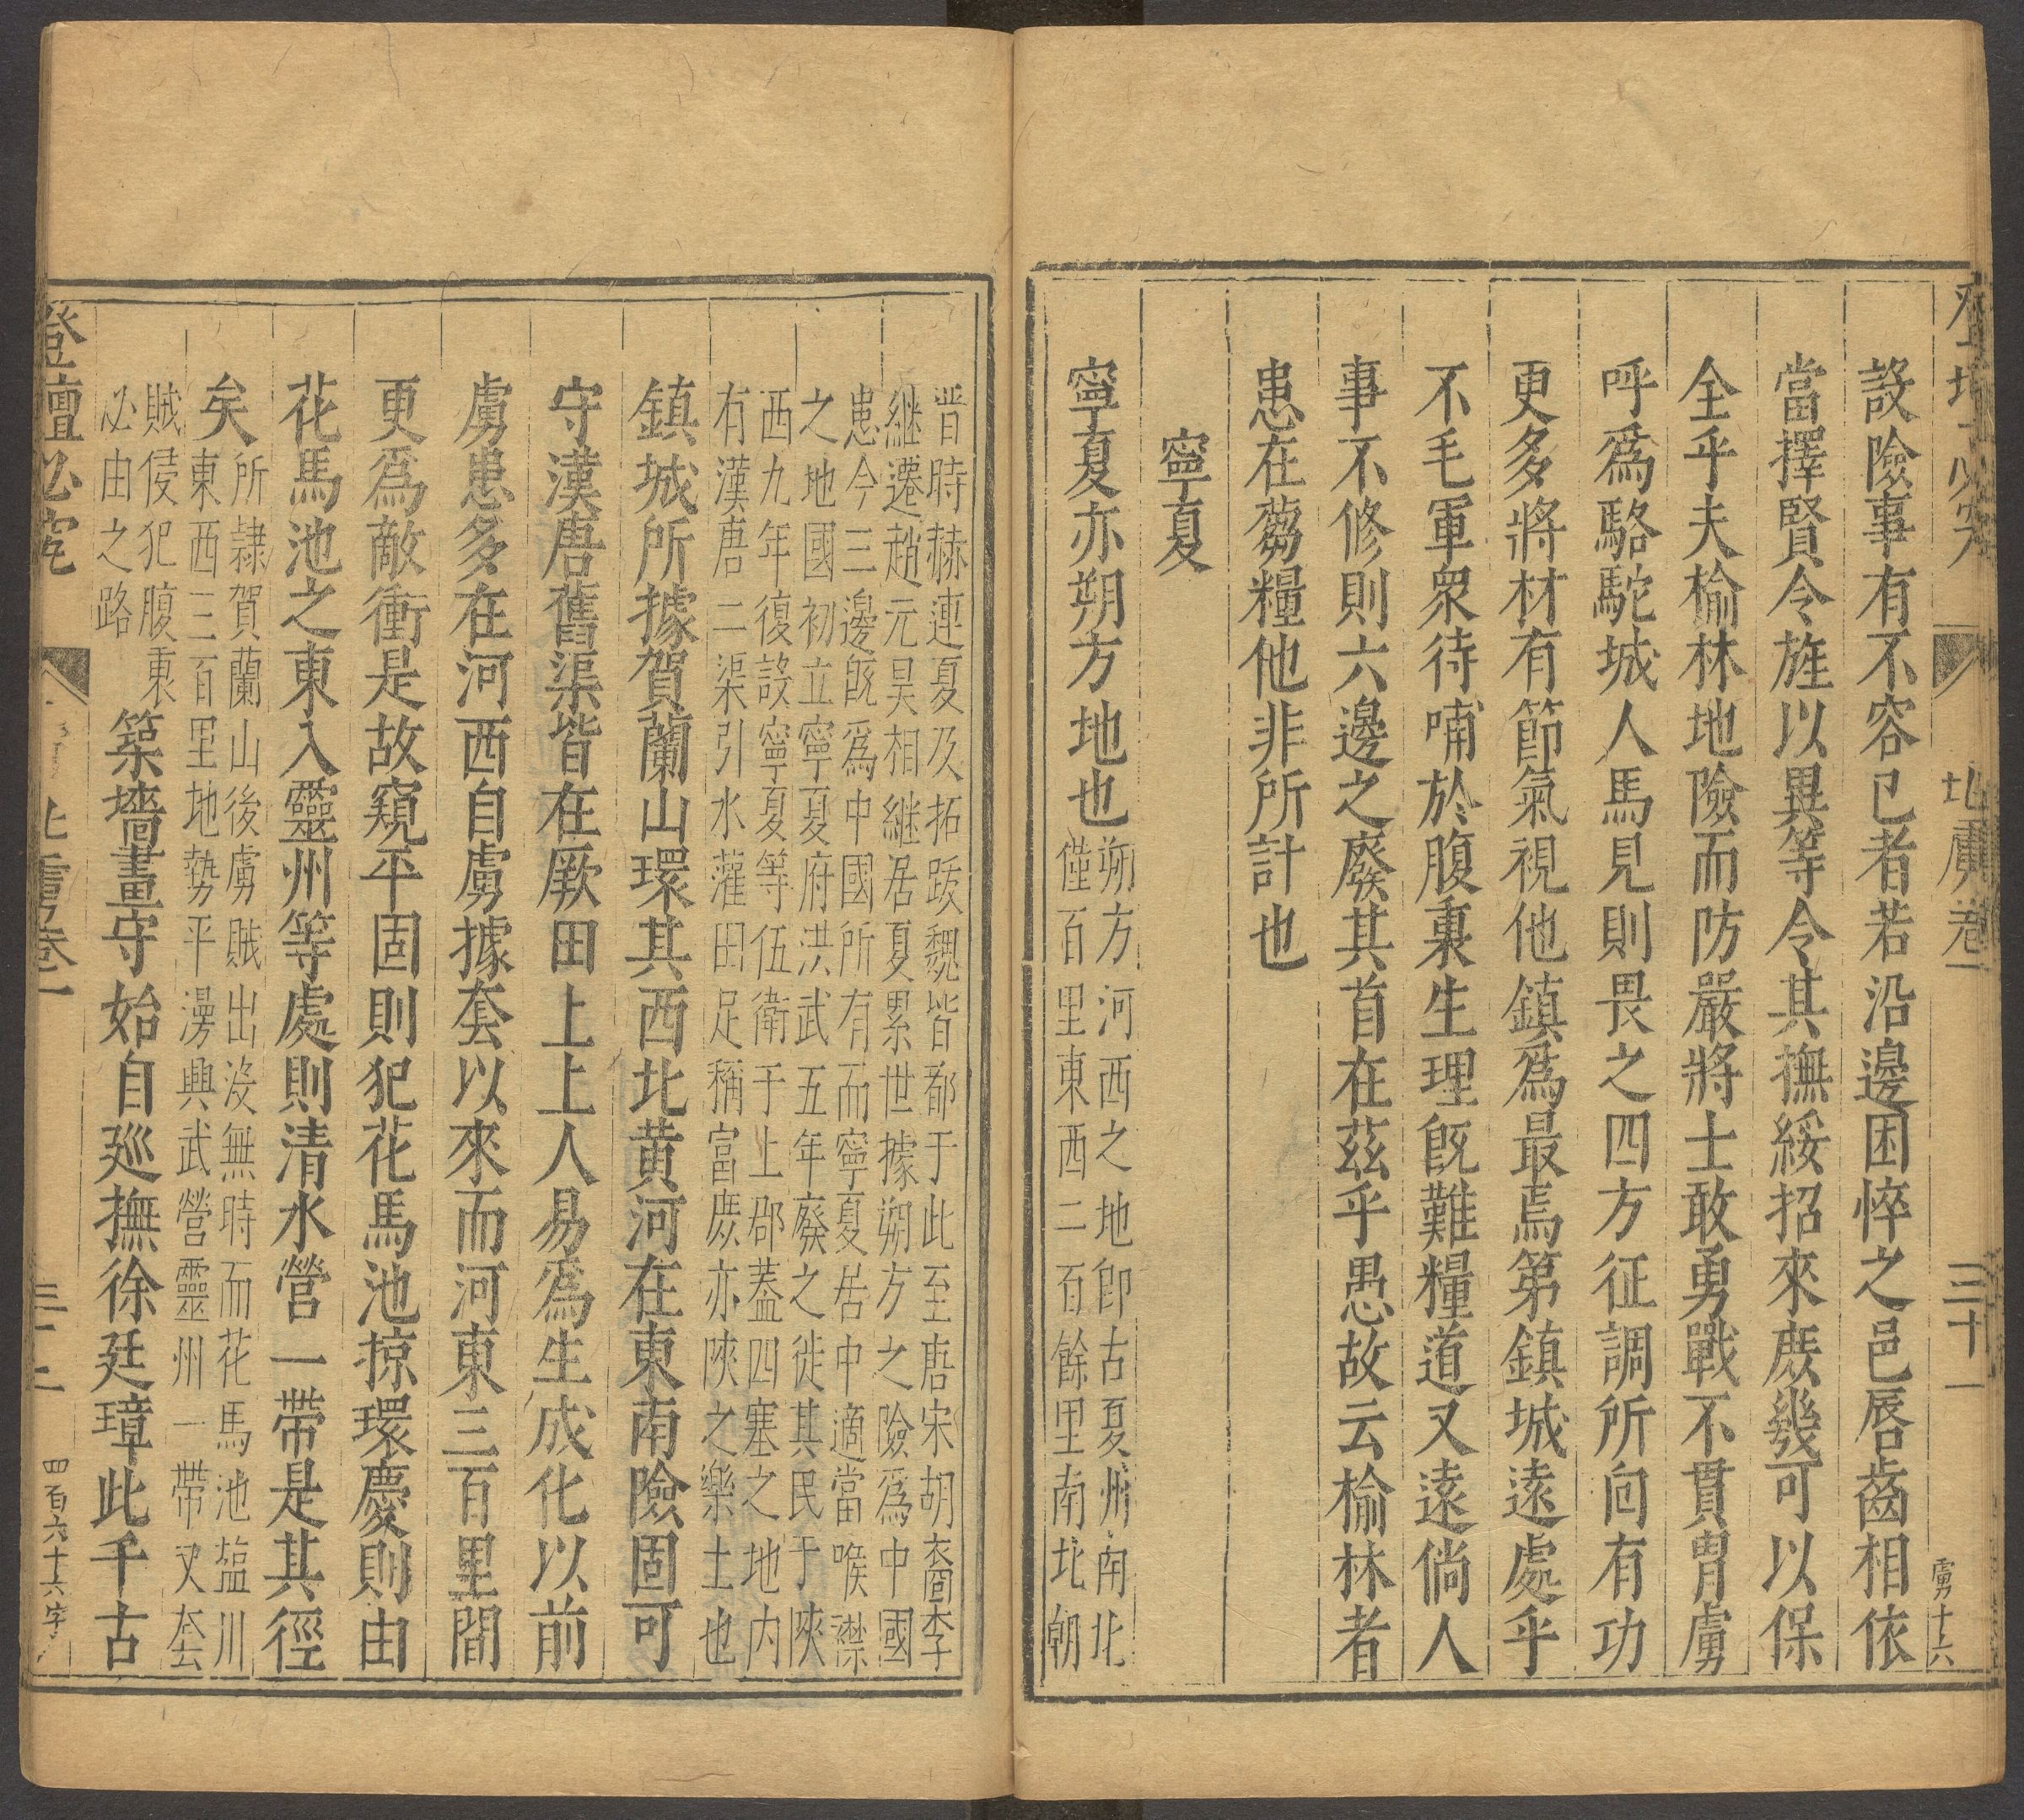 登壇必究
北虜卷一
三十一
虜十六
設險事有不容已者若沿邊困悴之邑唇齒相依
當擇賢令旌以異等令其撫綏招來庶幾可以保
全乎夫榆林地險而防嚴將士敢勇戰不貫胄虜
呼爲駱駝城人馬見則畏之四方征調所向有功
更多將材有節氣視他鎮爲最焉第鎮城遠處乎
不毛軍衆待哺於腹裏生理旣難糧道又遠倘人
事不修則六邊之廢其首在茲乎愚故云榆林者
患在芻糧他非所計也
寧夏
寧夏亦朔方地也
朔方河西之地卽古夏州南北
僅百里東西二百餘里南北朝
晉時赫連夏及拓跋魏皆都于此至唐宋胡酋李
繼遷趙元昊相繼居夏累世據朔方之險爲中國
患今三邊旣爲中國所有而寧夏居中適當喉襟
之地國初立寧夏府洪武五年廢之徙其民于陝
西九年復設寧夏等伍衛于上郡蓋四塞之地内
有漢唐二渠引水灌田足稱富庶亦陝之樂土也
鎮城所據賀蘭山環其西北黄河在東南險固可
守漢唐舊渠皆在厥田上上人易爲生成化以前
虜患多在河西自虜據套以來而河東三百里間
更爲敵衝是故窺平固則犯花馬池掠環慶則由
花馬池之東入靈州等處則清水營一帶是其徑
矣
所隷賀蘭山後虜賊出没無時而花馬池塩川
東西三百里地勢平漫興武營靈州一帶又套
賊侵犯腹裏
必由之路
築墻畫守始自巡撫徐廷璋此千古
登壇必究
北虜卷一
四百六十六字